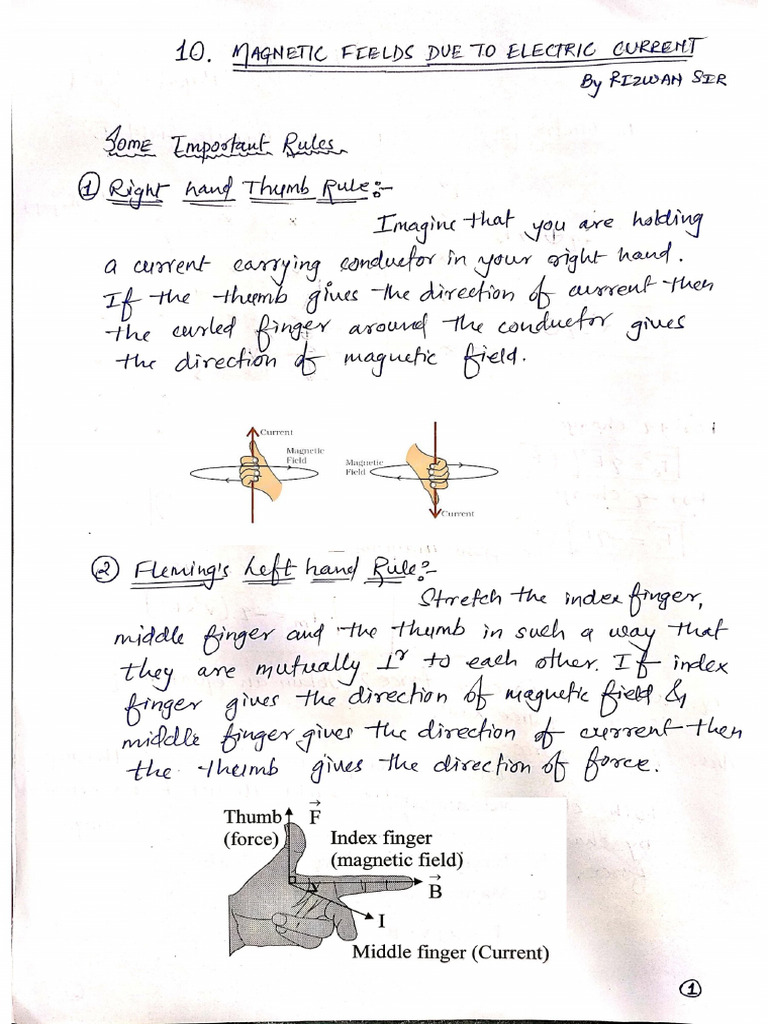 10. MAGNETIC FIELDS DUE TO ELECTRIC CURRENT
By RIZWAN SIR
Some Important Rules
① Right hand Thumb Rule:-
Imagine that you are holding
a current carrying conductor in your right hand.
If the thumb gives the direction of current then
the curled finger around the conductor gives
the direction of magnetic field.
Current
Magnetic
Field
Magnetic
Field
Current
② Fleming's Left hand Rule:-
Stretch the index finger,
middle finger and the thumb in such a way that
they are mutually ⊥r to each other. If index
finger gives the direction of magnetic field &
middle finger gives the direction of current then
the thumb gives the direction of force.
Thumb F
(force) Index finger
(magnetic field)
B
I
Middle finger (Current)
①